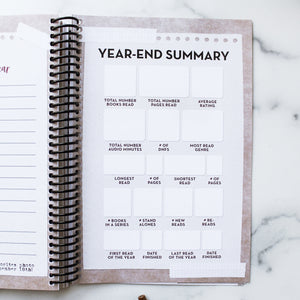 YEAR-END SUMMARY
TOTAL NUMBER BOOKS READ
TOTAL NUMBER PAGES READ
AVERAGE RATING
TOTAL NUMBER AUDIO MINUTES
# OF DNFS
MOST READ GENRE
LONGEST READ
# OF PAGES
SHORTEST READ
# OF PAGES
# BOOKS IN A SERIES
# STAND ALONES
# NEW READS
# RE-READS
FIRST READ OF THE YEAR
DATE FINISHED
LAST READ OF THE YEAR
DATE FINISHED